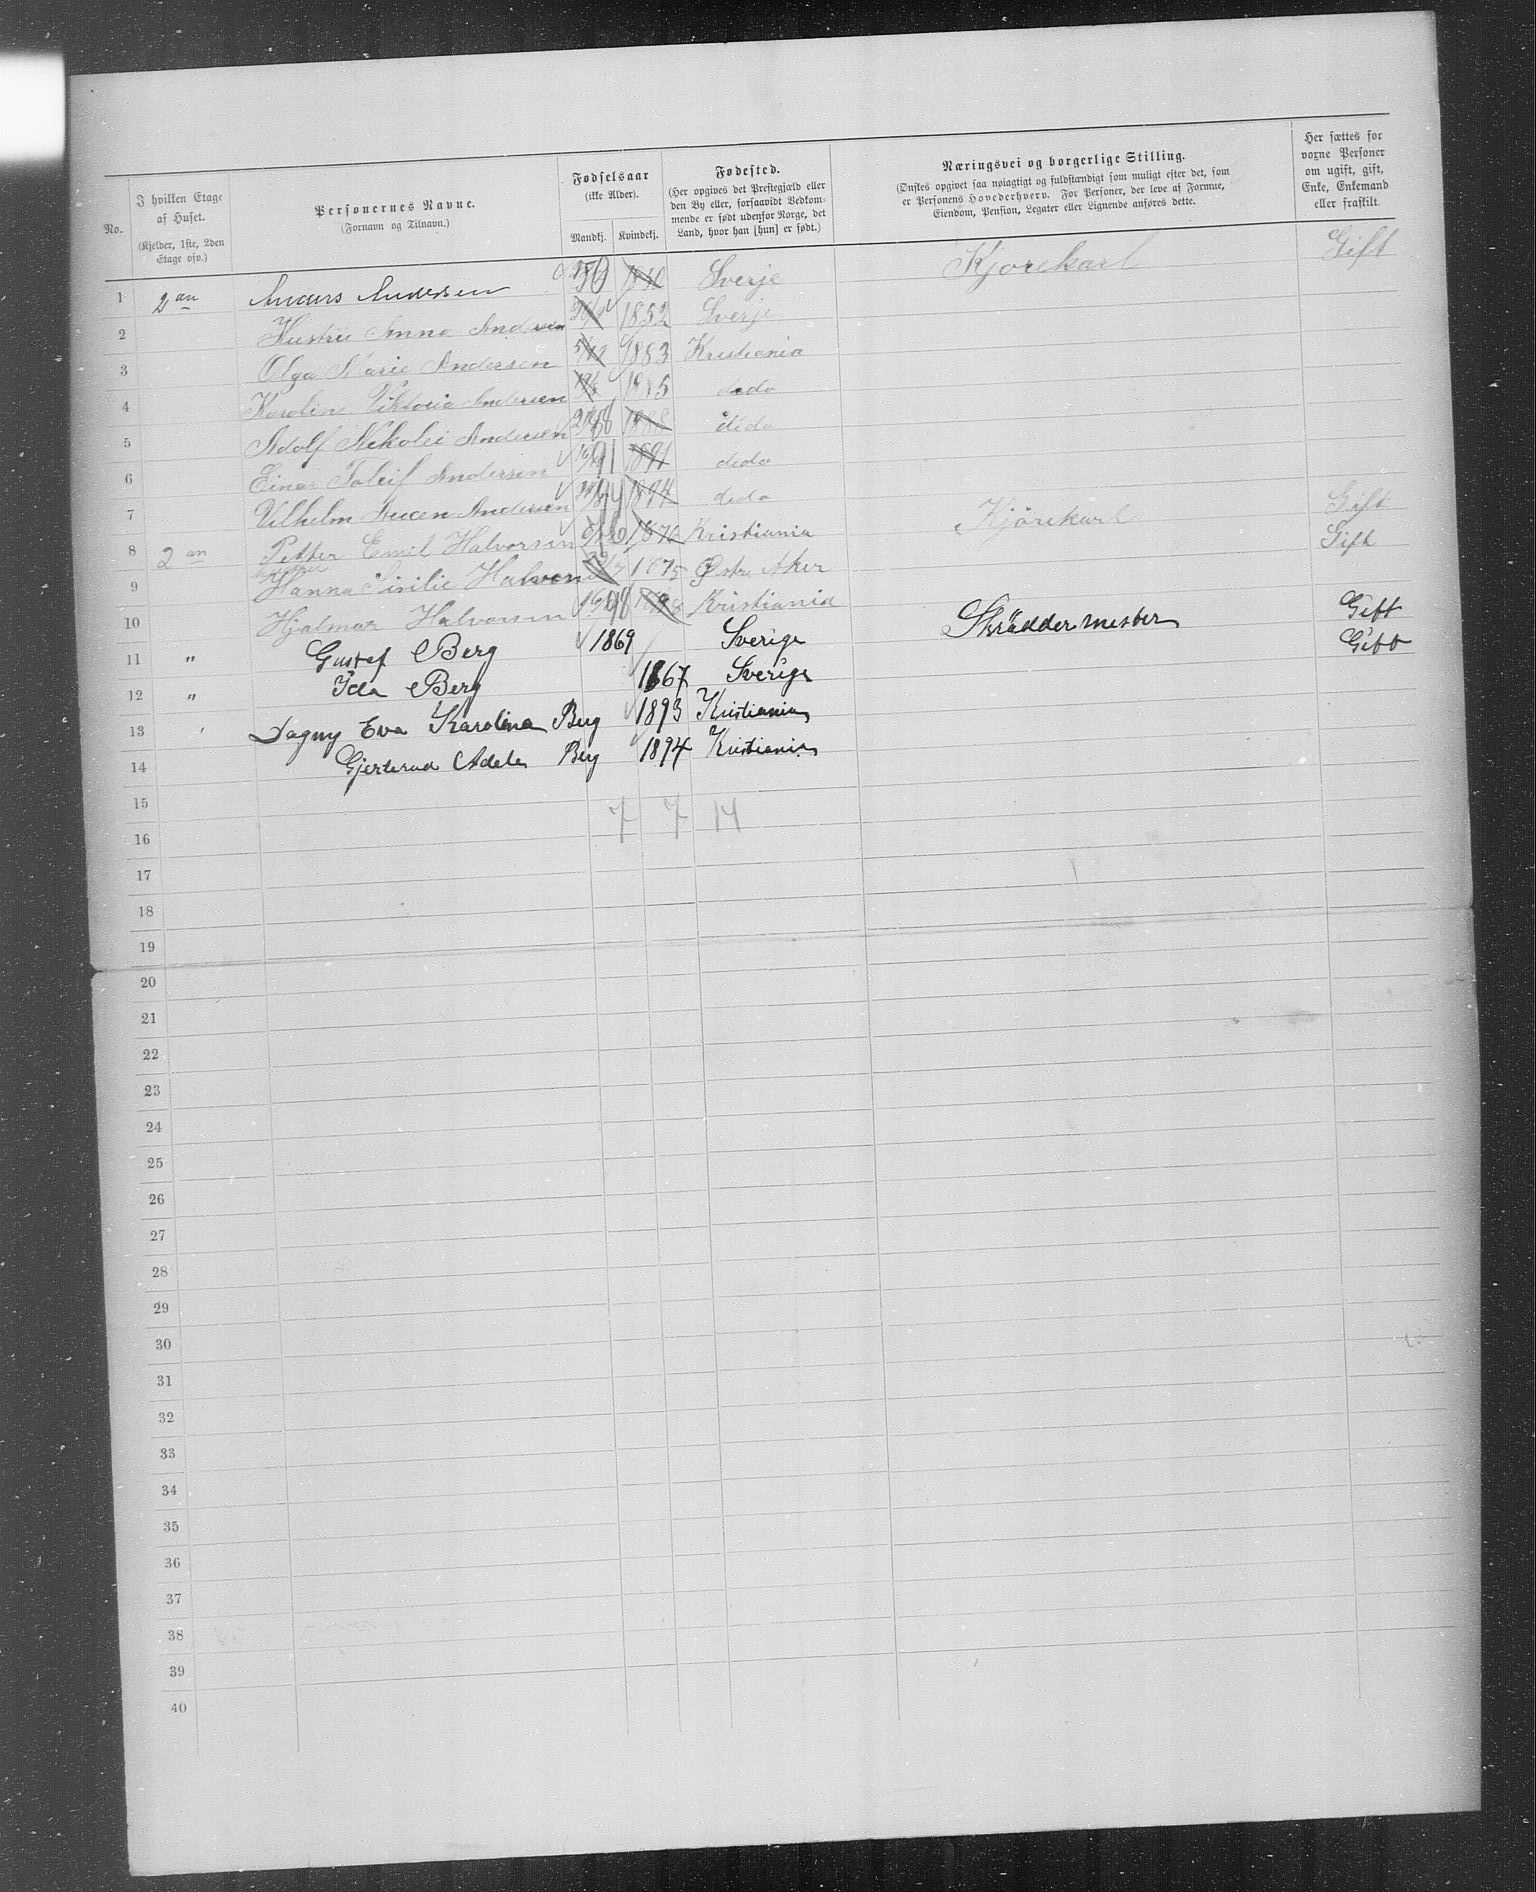 No. | I hvilken Etage af Huset. (Kjelder, 1ste, 2den Etage osv.) | Personernes Navne. (Fornavn og Tilnavn.) | Fødselsaar (ikke Alder). Mandkj. Kvindekj. | Fødested. (Her opgives det Prestegjæld eller den By eller, forsaavidt Vedkommende er født udenfor Norge, det Land, hvor han [hun] er født.) | Næringsvei og borgerlige Stilling. (Ønskes opgivet saa nøiagtigt og fuldstændigt som muligt efter det, som er Personens Hovederhverv. For Personer, der leve af Formue, Eiendom, Pension, Legater eller Lignende anføres dette. | Her sættes for voxne Personer om ugift, gift, Enke, Enkemand eller fraskilt.
1 2an Anders Andersen 50 1850 Sverje Kjørekarl Gift
2 Hustru Anna Andersen 1852 Sverje
3 Olga Marie Andersen 5/12 1883 Kristiania
4 Karoline Viktoria Andersen 1885 dodo
5 Adolf Nekolei Andersen 88 1888 dido
6 Einar Toleif Andersen 91 1891 dido
7 Vilhelm Andersen 94 1894 dido
8 2an Petter Emil Halvorsen 1876 Kristiania Kjørekarl Gift
9 Hustru Hanna Sisilie Halvorsen 1875 Østre Aker Gift
10 Hjalmar Halvorsen 98 Kristiania
11 " Gustaf Berg 1869 Sverige Skräddermester Gift
12 " Ida Berg 1867 Sverige Gift
13 Dagny Eva Karolina Berg 1893 Kristiania
14 Gjerterud Adele Berg 1894 Kristiania
15
16 7 7 14
17
18
19
20
21
22
23
24
25
26
27
28
29
30
31
32
33
34
35
36
37
38
39
40